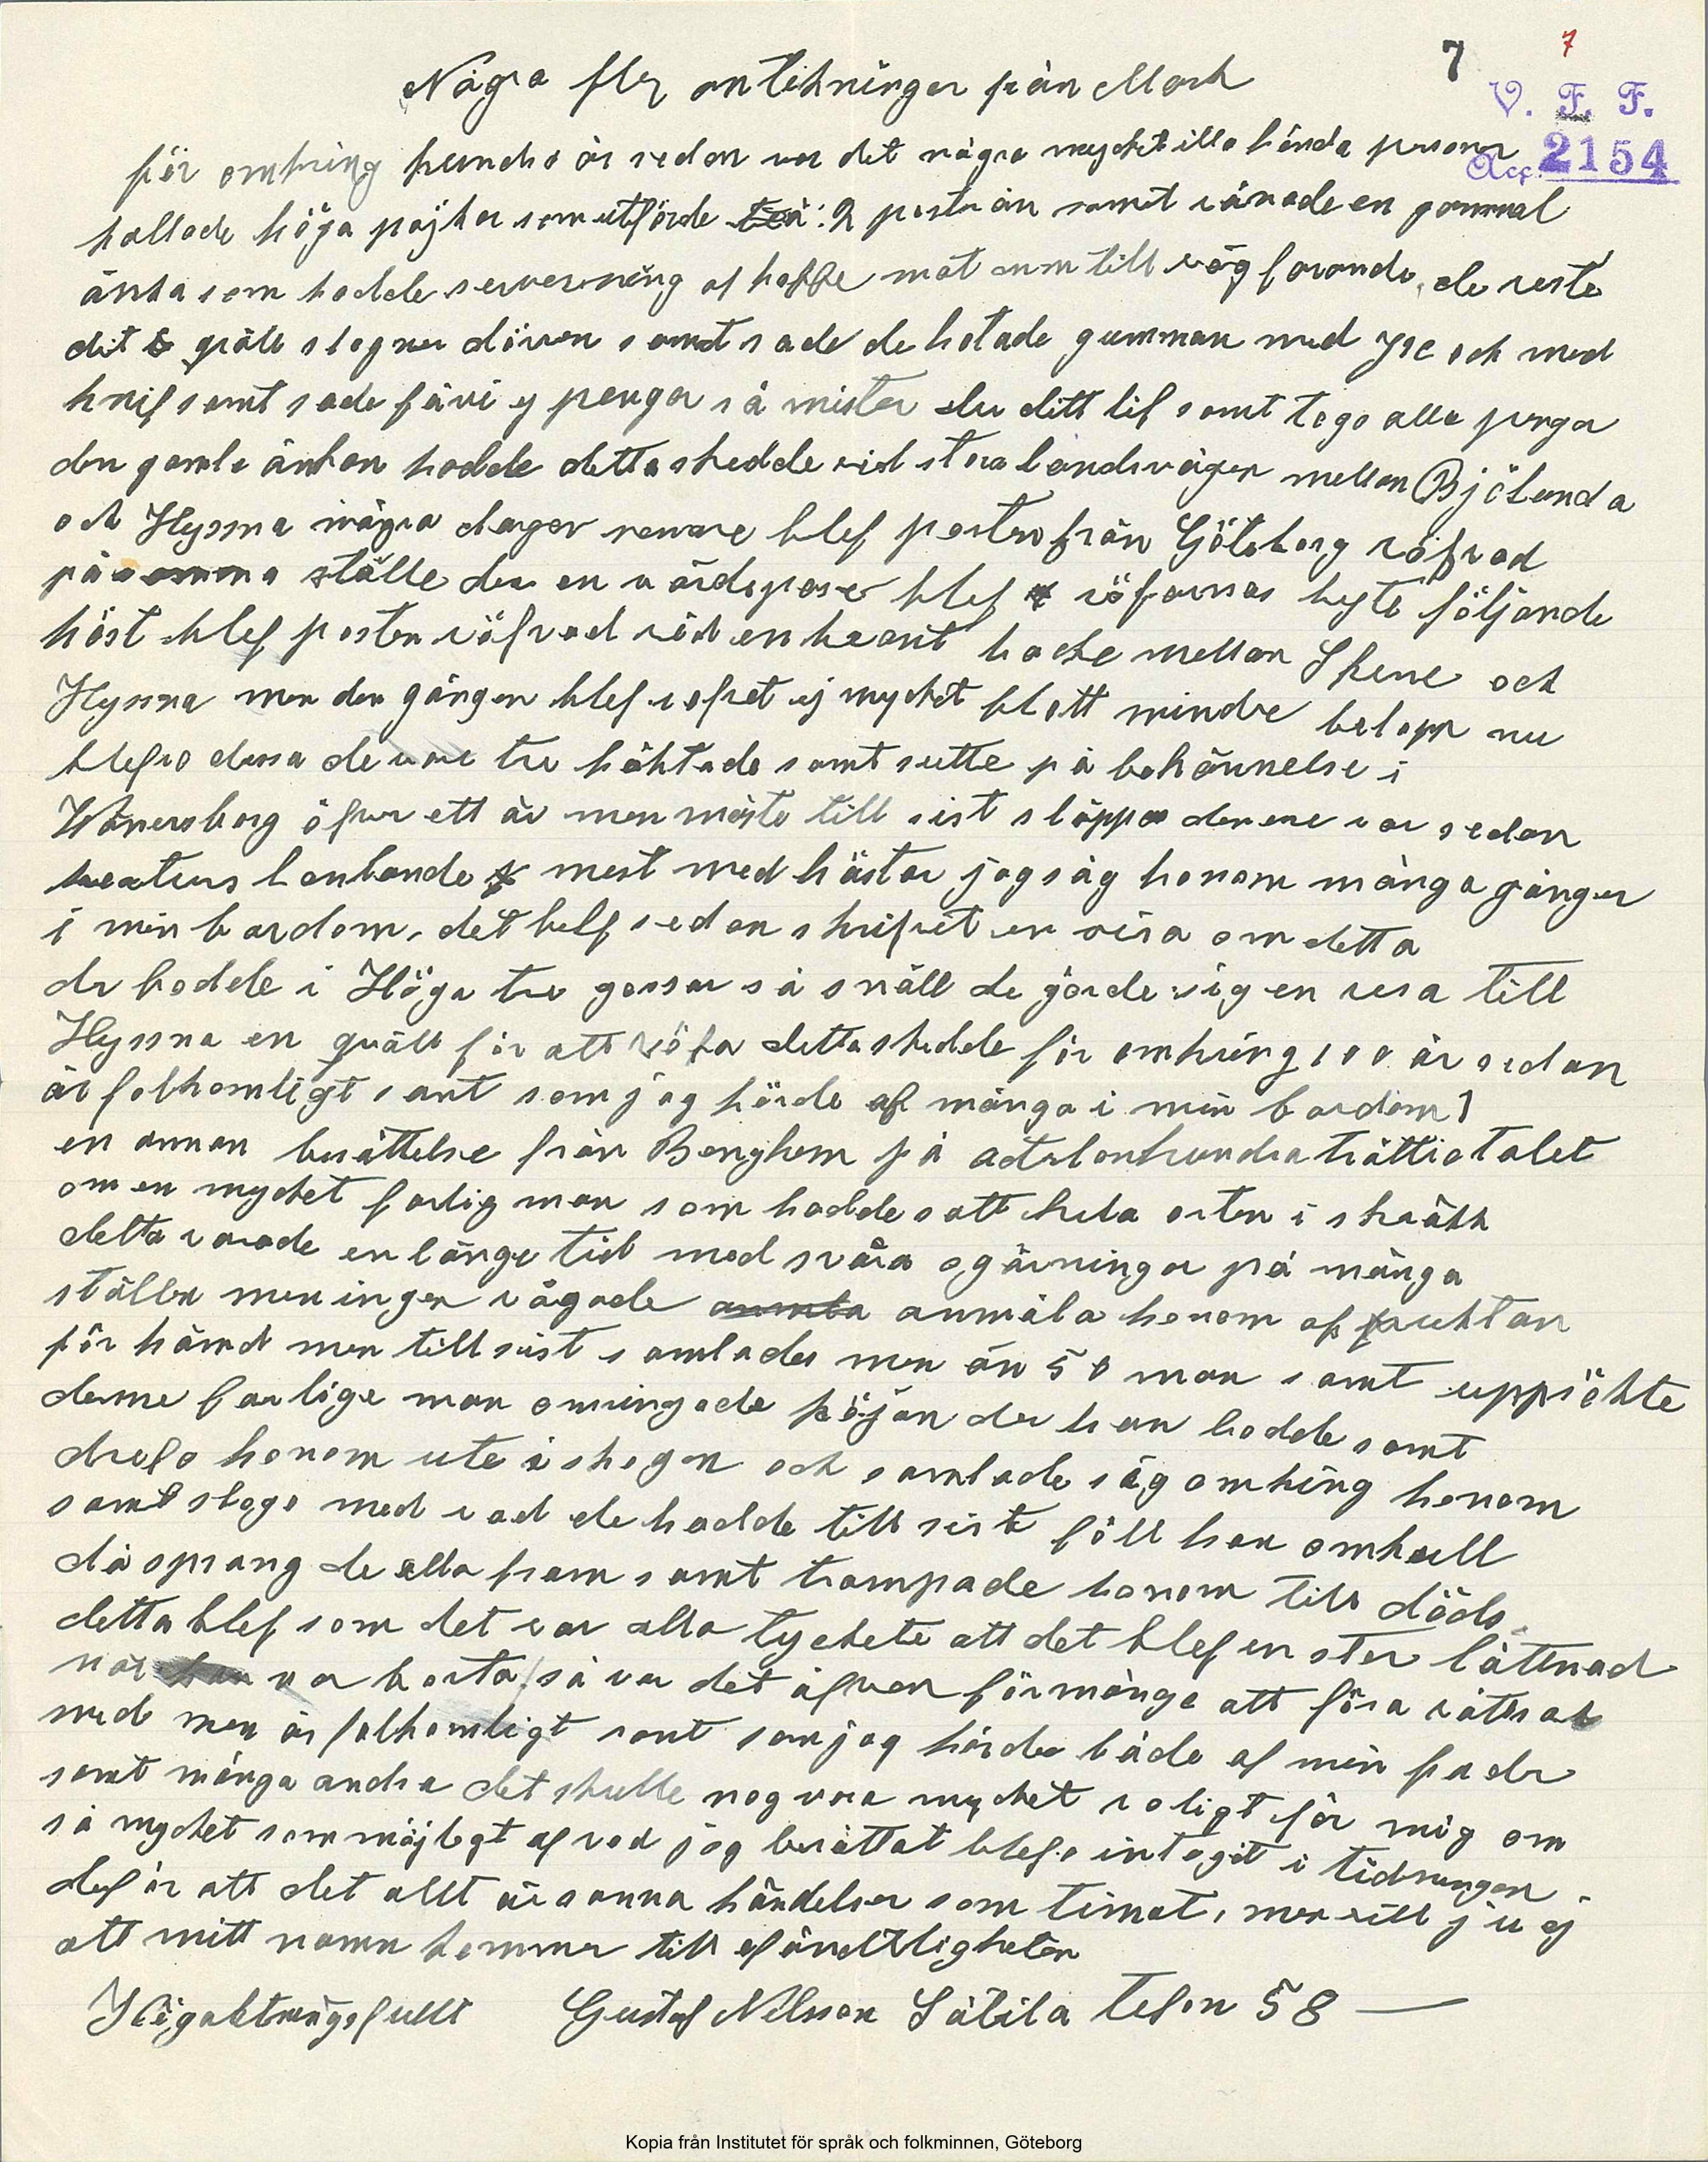 7 7
V. F. F.
Acc. 2154
Några fler antekninger från Mark
för omkring hundra år sedan var det några mycket illa kända persones
kallade höga pojkar som utförde 2 postrån samt rånade en gammal
änka som hadde serverening af kaffe mat mm till vägfarande, de reste
dit qväll slogner dören samt sade de hotade gumman med yxe och med
knif samt sade får vi ej pengar så mister du ditt lif samt togo alla penga
den gamla änkan hadde detta skedde vid stora landsvägen mellan Björlanda
och Hyssna några dagar senare blef posten från Göteborg röfvad
på samma ställe der en värdepose blef röfvarnas byte följande
höst blef posten röfvad vid en brant backe mellan Skene och
Hyssna men den gången blef rofvet ej mycket blott mindre belopp nu
blefvo dessa de vore tre häktade samt sutte på bekännelse i
Wänersborg öfver ett år men måste till sist släppas den ene var sedan
kreaturs hanlande mest med hästar jag såg honom många gånger
i min bardom, det belf sedan skrifvet en visa om detta
der bodde i Höga tre gossar så snäll de gjorde sig en resa till
Hyssna en qväll för att röfva detta skedde för omkring 100 år sedan
är folkomligt sant som jag hörde af många i min bardom!
en annan berättelse från Berghem på adertonhundraträttiotalet
om en mycket farlig man som hadde satt hela orten i skräkk
detta varade en länge tid med svåra ogärningar på många
ställen men ingen vågade anmäla honom af fruktan
för hämd men till sist samlades mer än 50 man samt uppsökte
denne farlige man omringade köjan der han bodde samt
drefo honom ute i skogen och samlade sig omkring honom
samt slogo med vad de hadde till sist föll han omkull
då sprang de alla fram samt trampade honom till döds
detta blef som det var alla tyckete att det blef en stor lättnad
när han var borta så var det äfven för många att föra rättsak
med men är folkomligt sant som jag hörde både af min fader
samt många andra det skulle nog vara mycket roligt för mig om
så mycket som möjlegt af vad jag berättat blefvo intogit i tidningen
def ör att det allt är sanna händelser som timat, men vill ju ej
att mitt namn kommer till ofändtligheten
Högaktningsfullt Gustaf Nilsson Sätila Tefon 58 —
Kopia från Institutet för språk och folkminnen, Göteborg